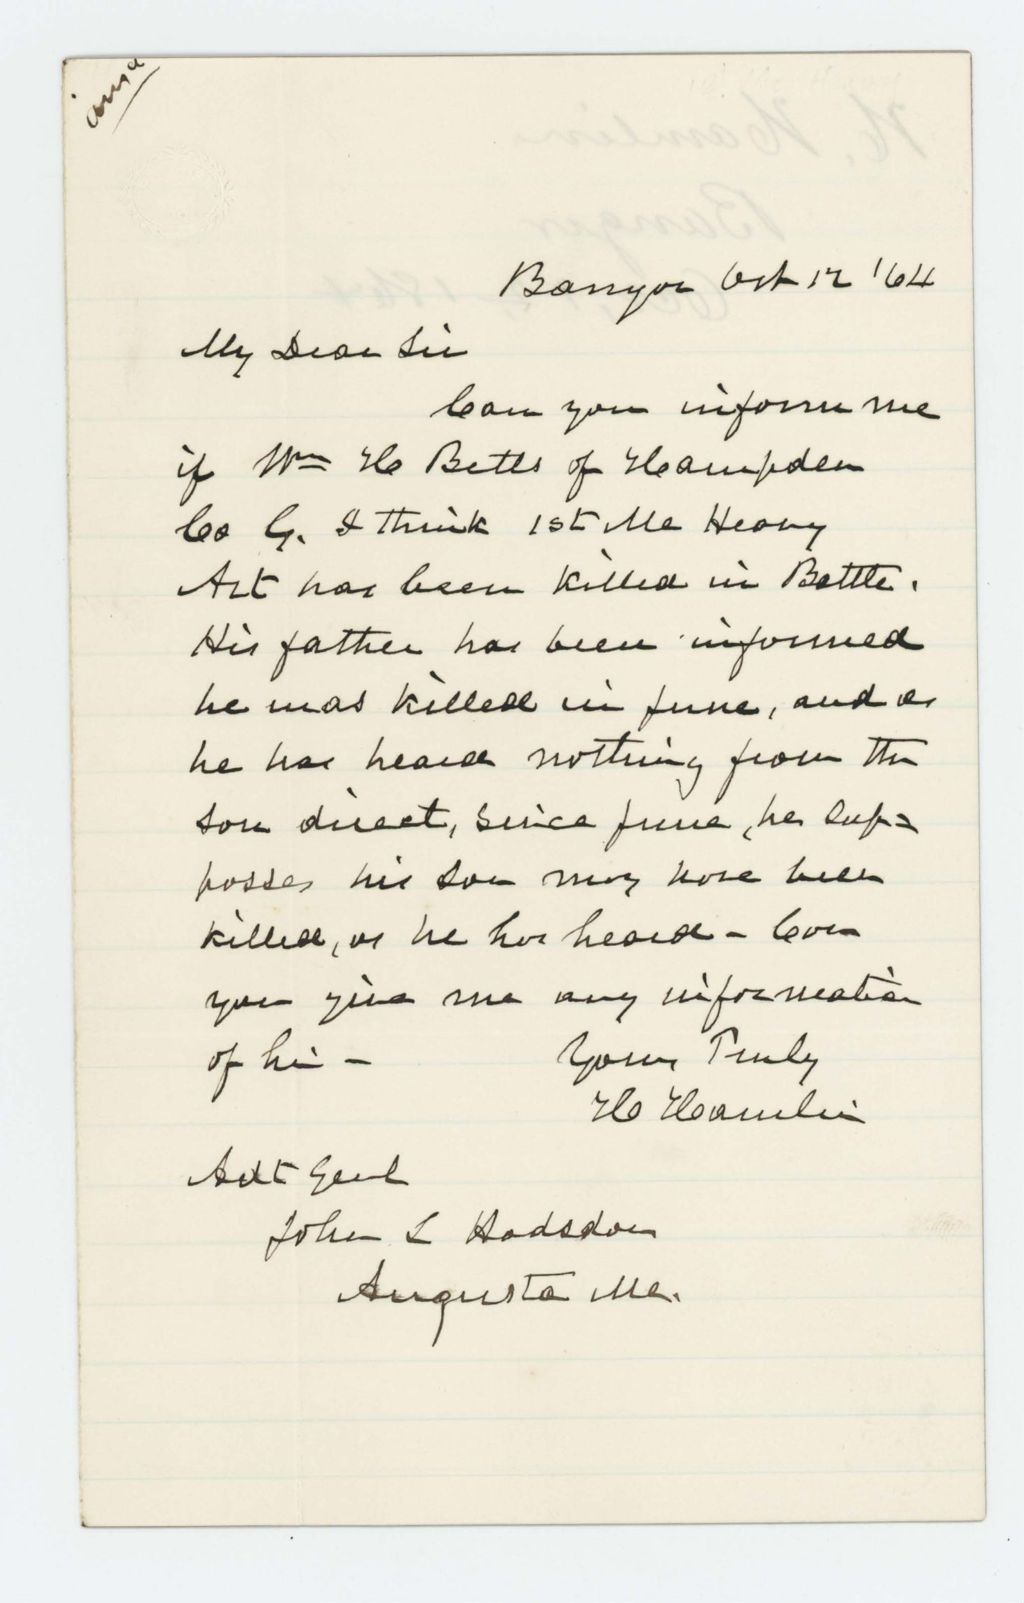 ansd
Bangor Oct 12 '64
My Dear Sir
Can you inform me
if Wm H Betts of Hampden
Co G. I think 1st Me Heavy
Art has been killed in Battle.
His father has been informed
he was killed in June, and as
he has heard nothing from the
son direct, since June, he sup=
posses his son may have been
killed, as he has heard - Can
you give me any information
of him -
Yours Truly
H Hamlin
Adt Genl
John L Hodsdon
Augusta Me.
H. Hamlin
Bangor